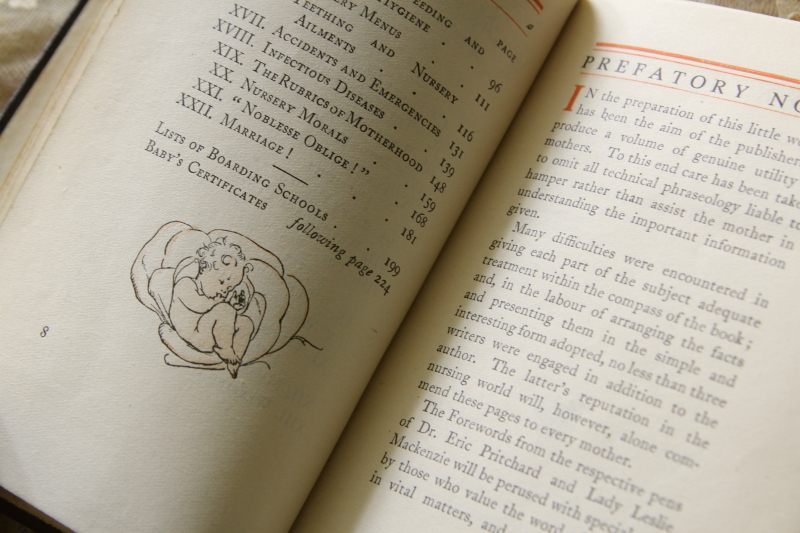 EEDING AND PAGE
HYGIENE . . 96
ERY MENUS . . 111
EETHING AND NURSERY
AILMENTS . . 116
XVII. ACCIDENTS AND EMERGENCIES 131
XVIII. INFECTIOUS DISEASES . . 139
XIX. THE RUBRICS OF MOTHERHOOD 148
XX. NURSERY MORALS . . 159
XXI. "NOBLESSE OBLIGE!" . . 168
XXII. MARRIAGE! . . . 181
LISTS OF BOARDING SCHOOLS . . 199
BABY'S CERTIFICATES following page 224
8
PREFATORY NO
IN the preparation of this little wo
has been the aim of the publisher
produce a volume of genuine utility
mothers. To this end care has been take
to omit all technical phraseology liable to
hamper rather than assist the mother in
understanding the important information
given.
Many difficulties were encountered in
giving each part of the subject adequate
treatment within the compass of the book;
and, in the labour of arranging the facts
and presenting them in the simple and
interesting form adopted, no less than three
writers were engaged in addition to the
author. The latter's reputation in the
nursing world will, however, alone com-
mend these pages to every mother.
The Forewords from the respective pens
of Dr. Eric Pritchard and Lady Leslie
Mackenzie will be perused with special
by those who value the word of
in vital matters, and